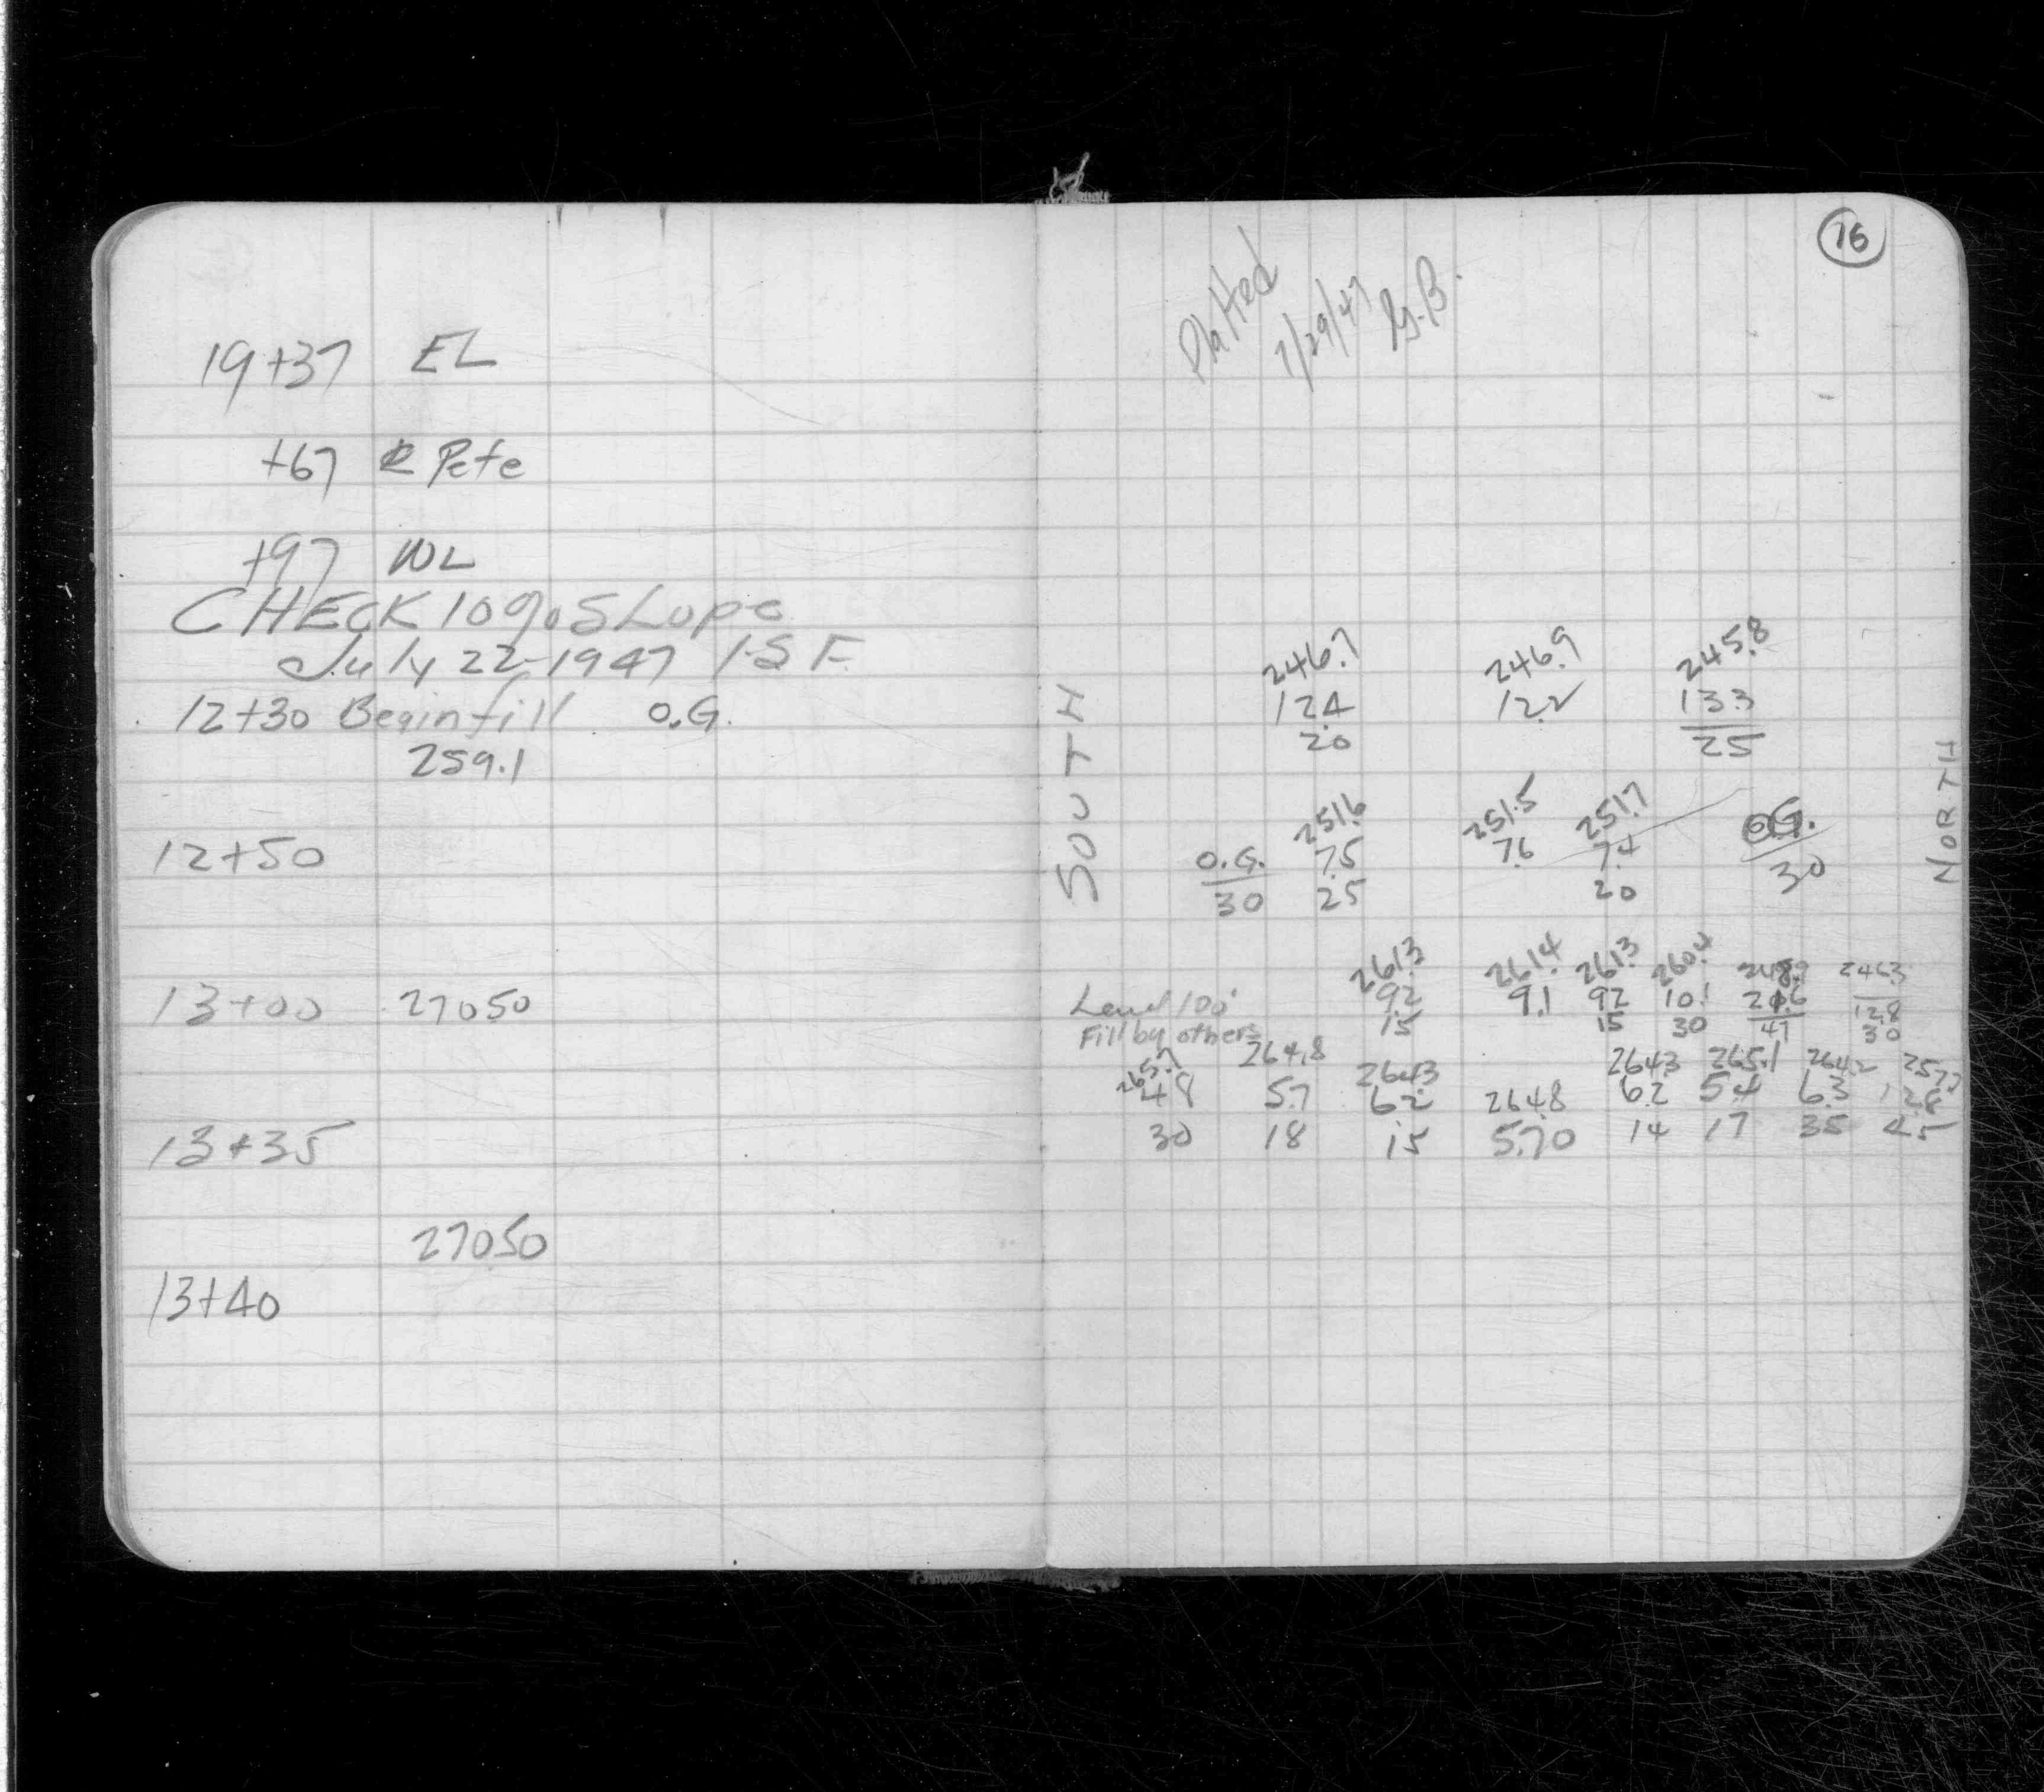 19+37 EL
+67 ȼ Pete
+97 WL
CHECK 10% SLope
July 22-1947 I.S F.
12+30 Begin fill O.G.
259.1
12+50
13+00 270.50
13+35
270.50
13+40
16
Platted
7/29/47
SOUTH
NORTH
246.7 246.9 245.8
12.4 12.2 13.3
20 25
251.6 251.5 251.7
O.G. 7.5 7.6 7.4 O.G.
30 25 20 30
261.3 261.4 261.3 260.4 248.9 246.3
Level 100' 9.2 9.1 9.2 10.1 21.6 12.8
Fill by others 15 15 30 47 30
265.7 264.8 264.3 264.3 265.1 264.2 257.7
4.8 5.7 6.2 264.8 6.2 5.4 6.3 12.8
30 18 15 5.70 14 17 35 45